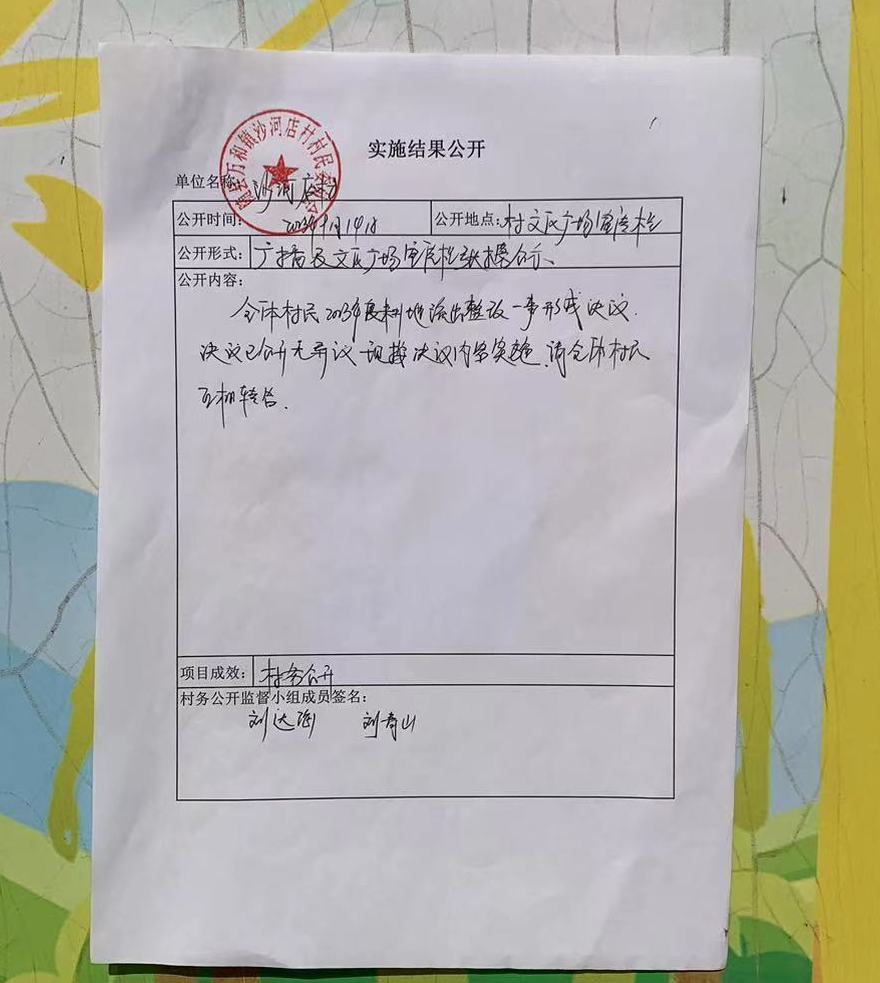 随县万和镇沙河店村村民委员会
实施结果公开
单位名称: 沙河店村
公开时间: 2023年9月14日 公开地点: 村文民广场宣传栏
公开形式: 广播及文民广场宣传栏张榜公示、
公开内容:
全体村民2023年度耕地流出整改一事形成决议.
决议已公开无异议现按决议内容实施、请全体村民
互相转告.
项目成效: 村务公开
村务公开监督小组成员签名:
刘达 刘青山